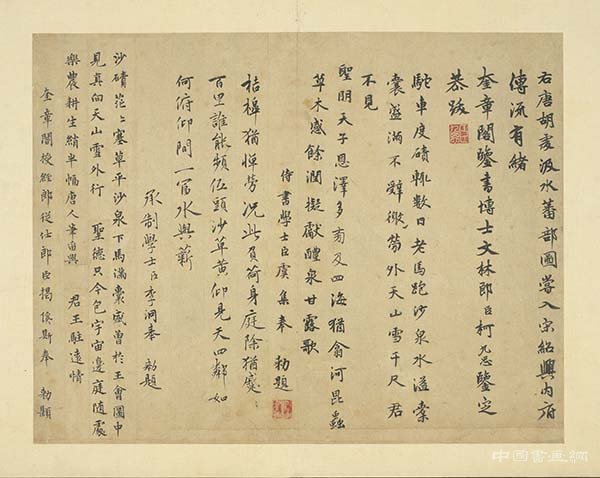 右唐胡虔汲水蕃部圖嘗入宋紹興內府
傳流有緒
奎章閣鑒書博士文林郎臣柯九思鑒定
恭跋
駝車度磧輒數日老馬跑沙泉水溢橐
囊盛滿不辭徼勞外天山雪千尺君
不見
聖明天子恩澤多旁及四海猶翕河昆蟲
草木感餘潤擬獻醴泉甘露歌
侍書學士臣虞集奉 勅題
桔橰猶憚勞況此負荷身庭除猶
百里誰能頻低頭沙草黃仰見天四鄰如
何俯仰間一富水與薪
承制學士臣李泂奉 勅題
沙磧茫〻塞草平沙泉下馬滿囊盛曾於王會圖中
見真向天山雪外行 聖德只今包宇宙邊庭隨處
樂農耕生綃半幅唐人筆留與 君王駐遠情
奎章閣授經郎從仕郎臣揭傒斯奉 勅題
中國書畫網